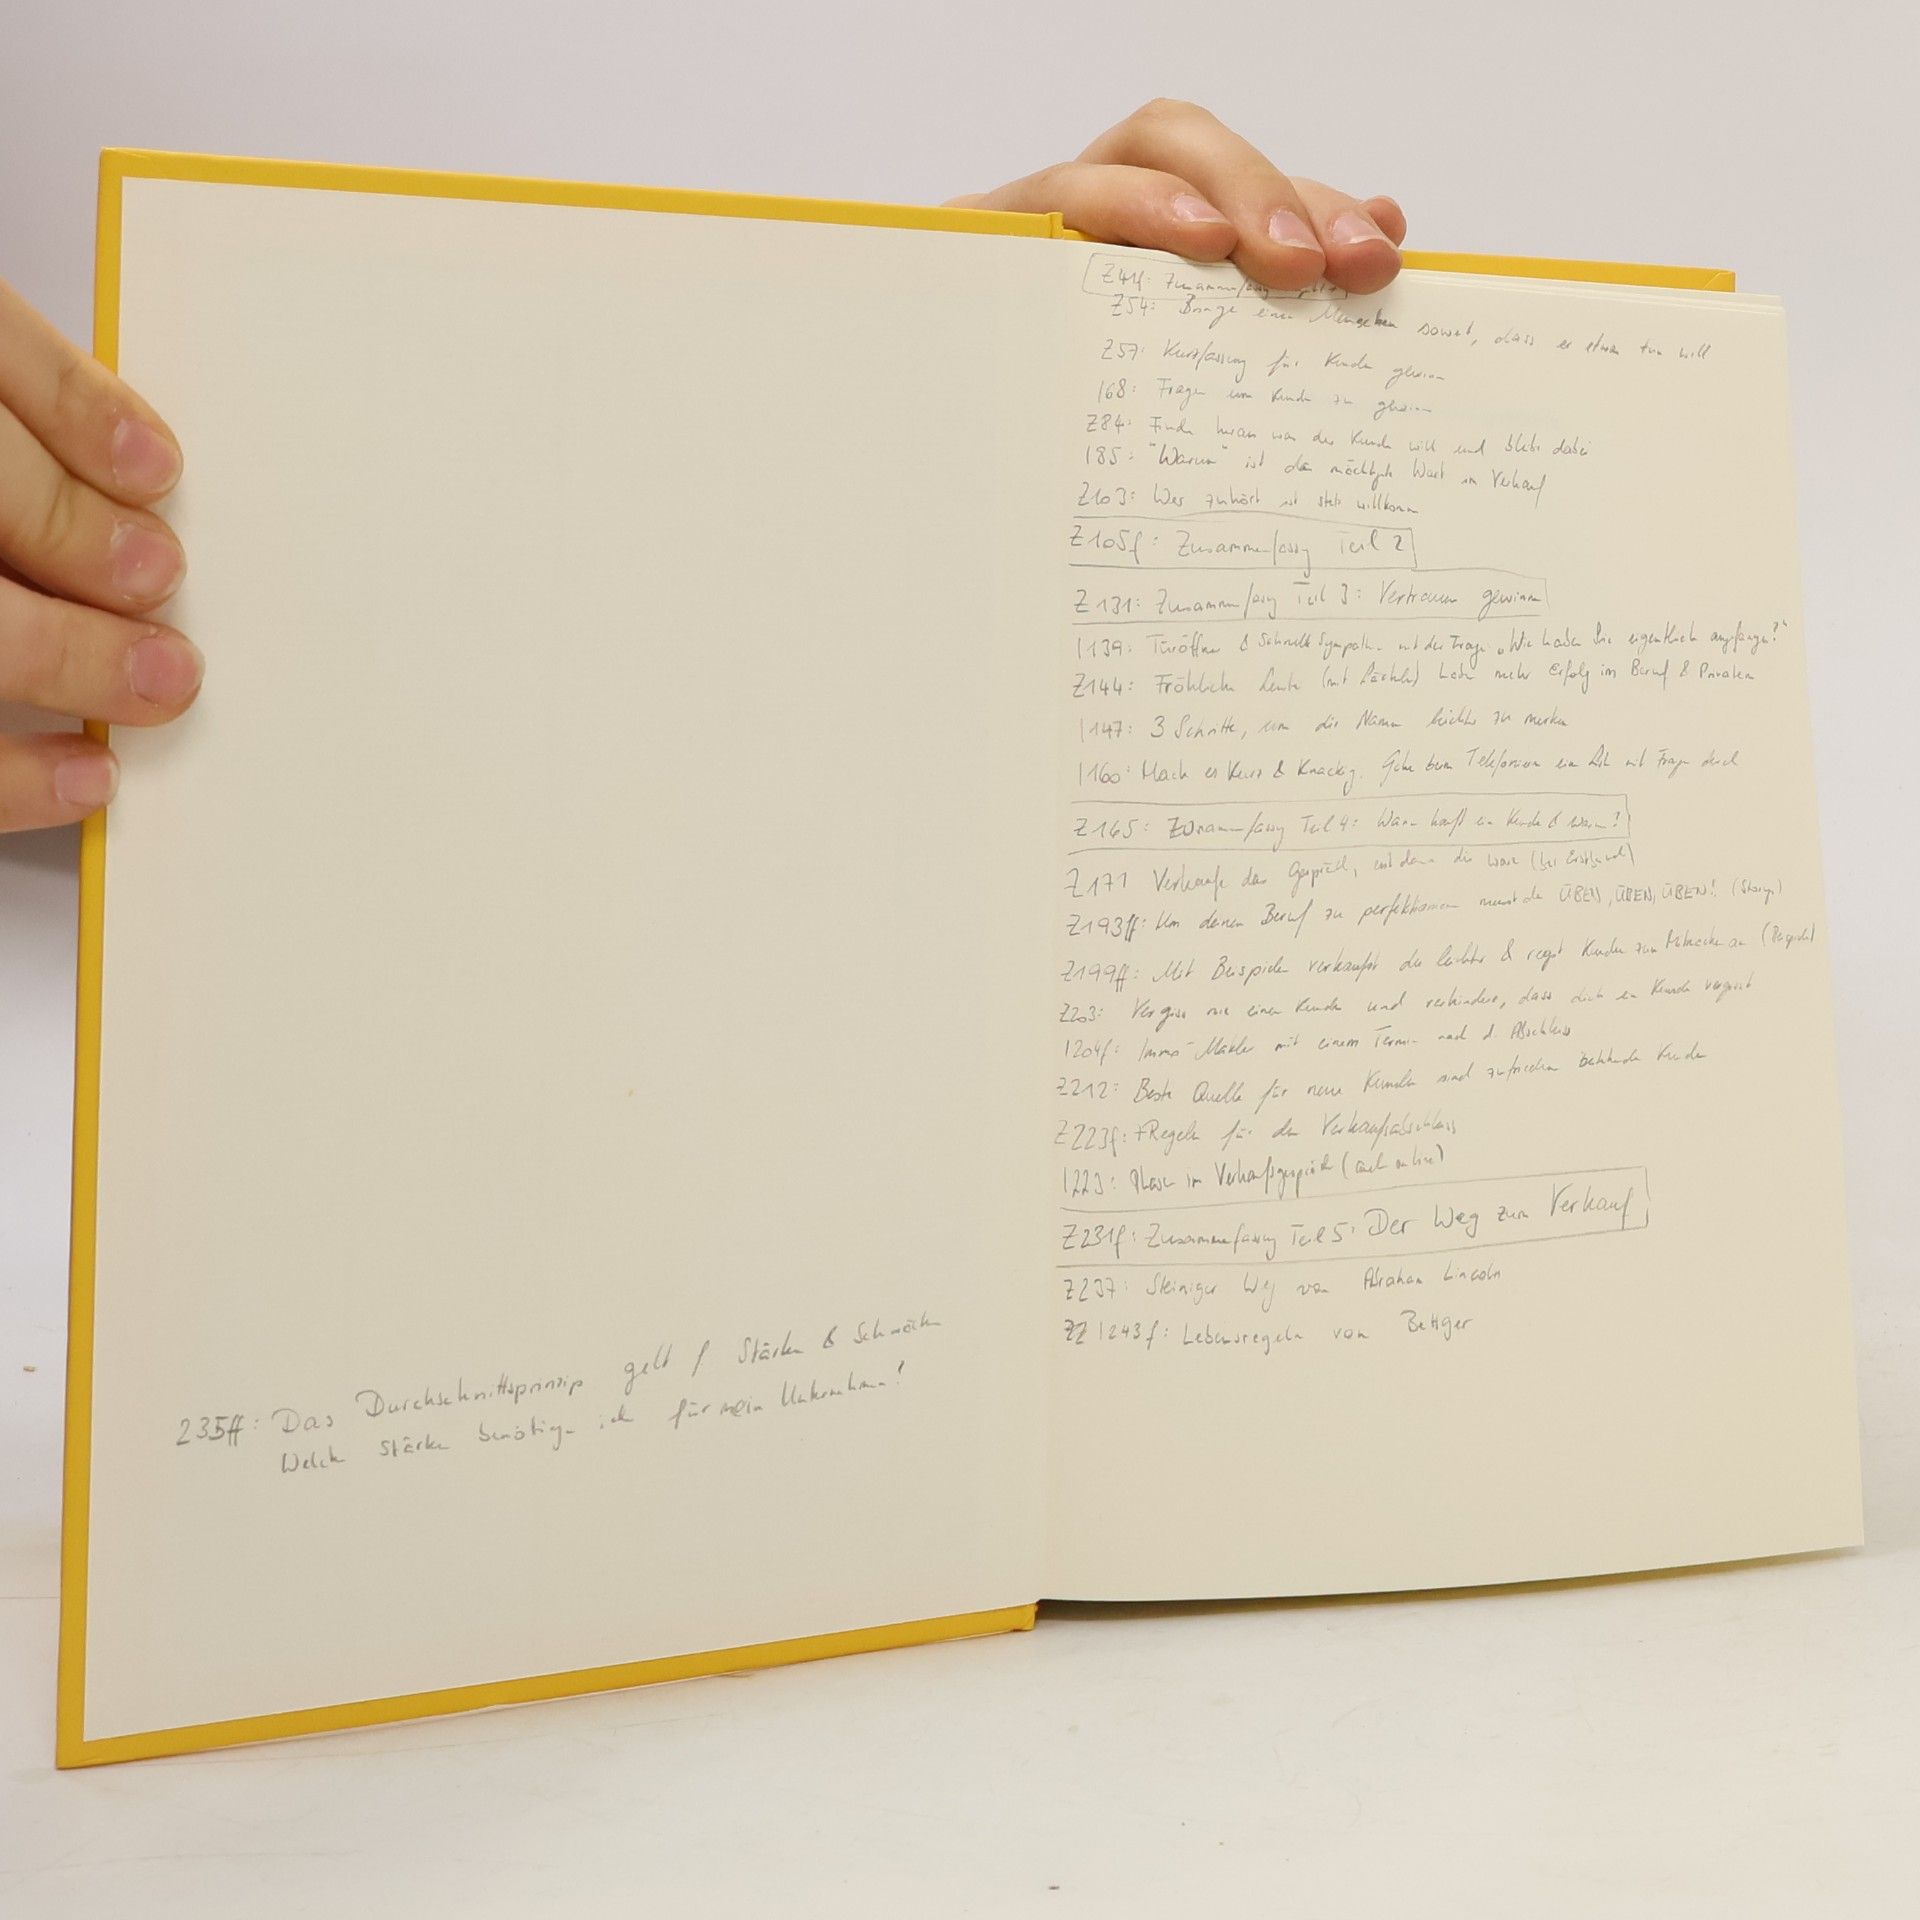 235ff: Das Durchschnittsprinzip gelt f. Stärken & Schwächen
Welche Stärken benötige ich für mein Unternehmen?
Z41f: Zusammenfassung
Z54: Bringe einen Menschen soweit, dass er etwas tun will
Z57: Kurzfassung für Kunden gewinnen
I68: Fragen um Kunden zu gewinnen
Z84: Finde heraus was der Kunde will und bleibe dabei
I85: "Warum" ist das mächtigste Wort im Verkauf
Z103: Wer zuhört ist stets willkommen
Z105f: Zusammenfassung Teil 2
Z131: Zusammenfassung Teil 3: Vertrauen gewinnen
I139: Türöffner & Schnelle Sympathie mit der Frage: „Wie haben Sie eigentlich angefangen?"
Z144: Fröhliche Leute (mit Lächeln) haben mehr Erfolg im Beruf & Privatem
I147: 3 Schritte, um die Namen leichter zu merken
I160: Mach es Kurz & Knackig. Gehe beim Telefonieren eine Liste mit Fragen durch
Z165: Zusammenfassung Teil 4: Wann kauft ein Kunde & warum?
Z171 Verkaufe das Gespräch, erst dann die Ware (bei Erstkunde)
Z193ff: Um deinen Beruf zu perfektionieren musst du ÜBEN, ÜBEN, ÜBEN!
Z199ff: Mit Beispielen verkaufst du leichter & regst Kunden zum Mitmachen an (Beispiele)
Z203: Vergiss nie einen Kunden und verhindere, dass dich ein Kunde vergisst
I204f: Immo-Makler mit einem Termin nach d. Abschluss
Z212: Beste Quelle für neue Kunden sind zufriedene bestehende Kunden
Z223f: 7 Regeln für den Verkaufsabschluss
I223: Phasen im Verkaufsgespräch (auch online)
Z231f: Zusammenfassung Teil 5: Der Weg zum Verkauf
Z237: Steiniger Weg von Abraham Lincoln
ZZ I243f: Lebensregeln von Bettger